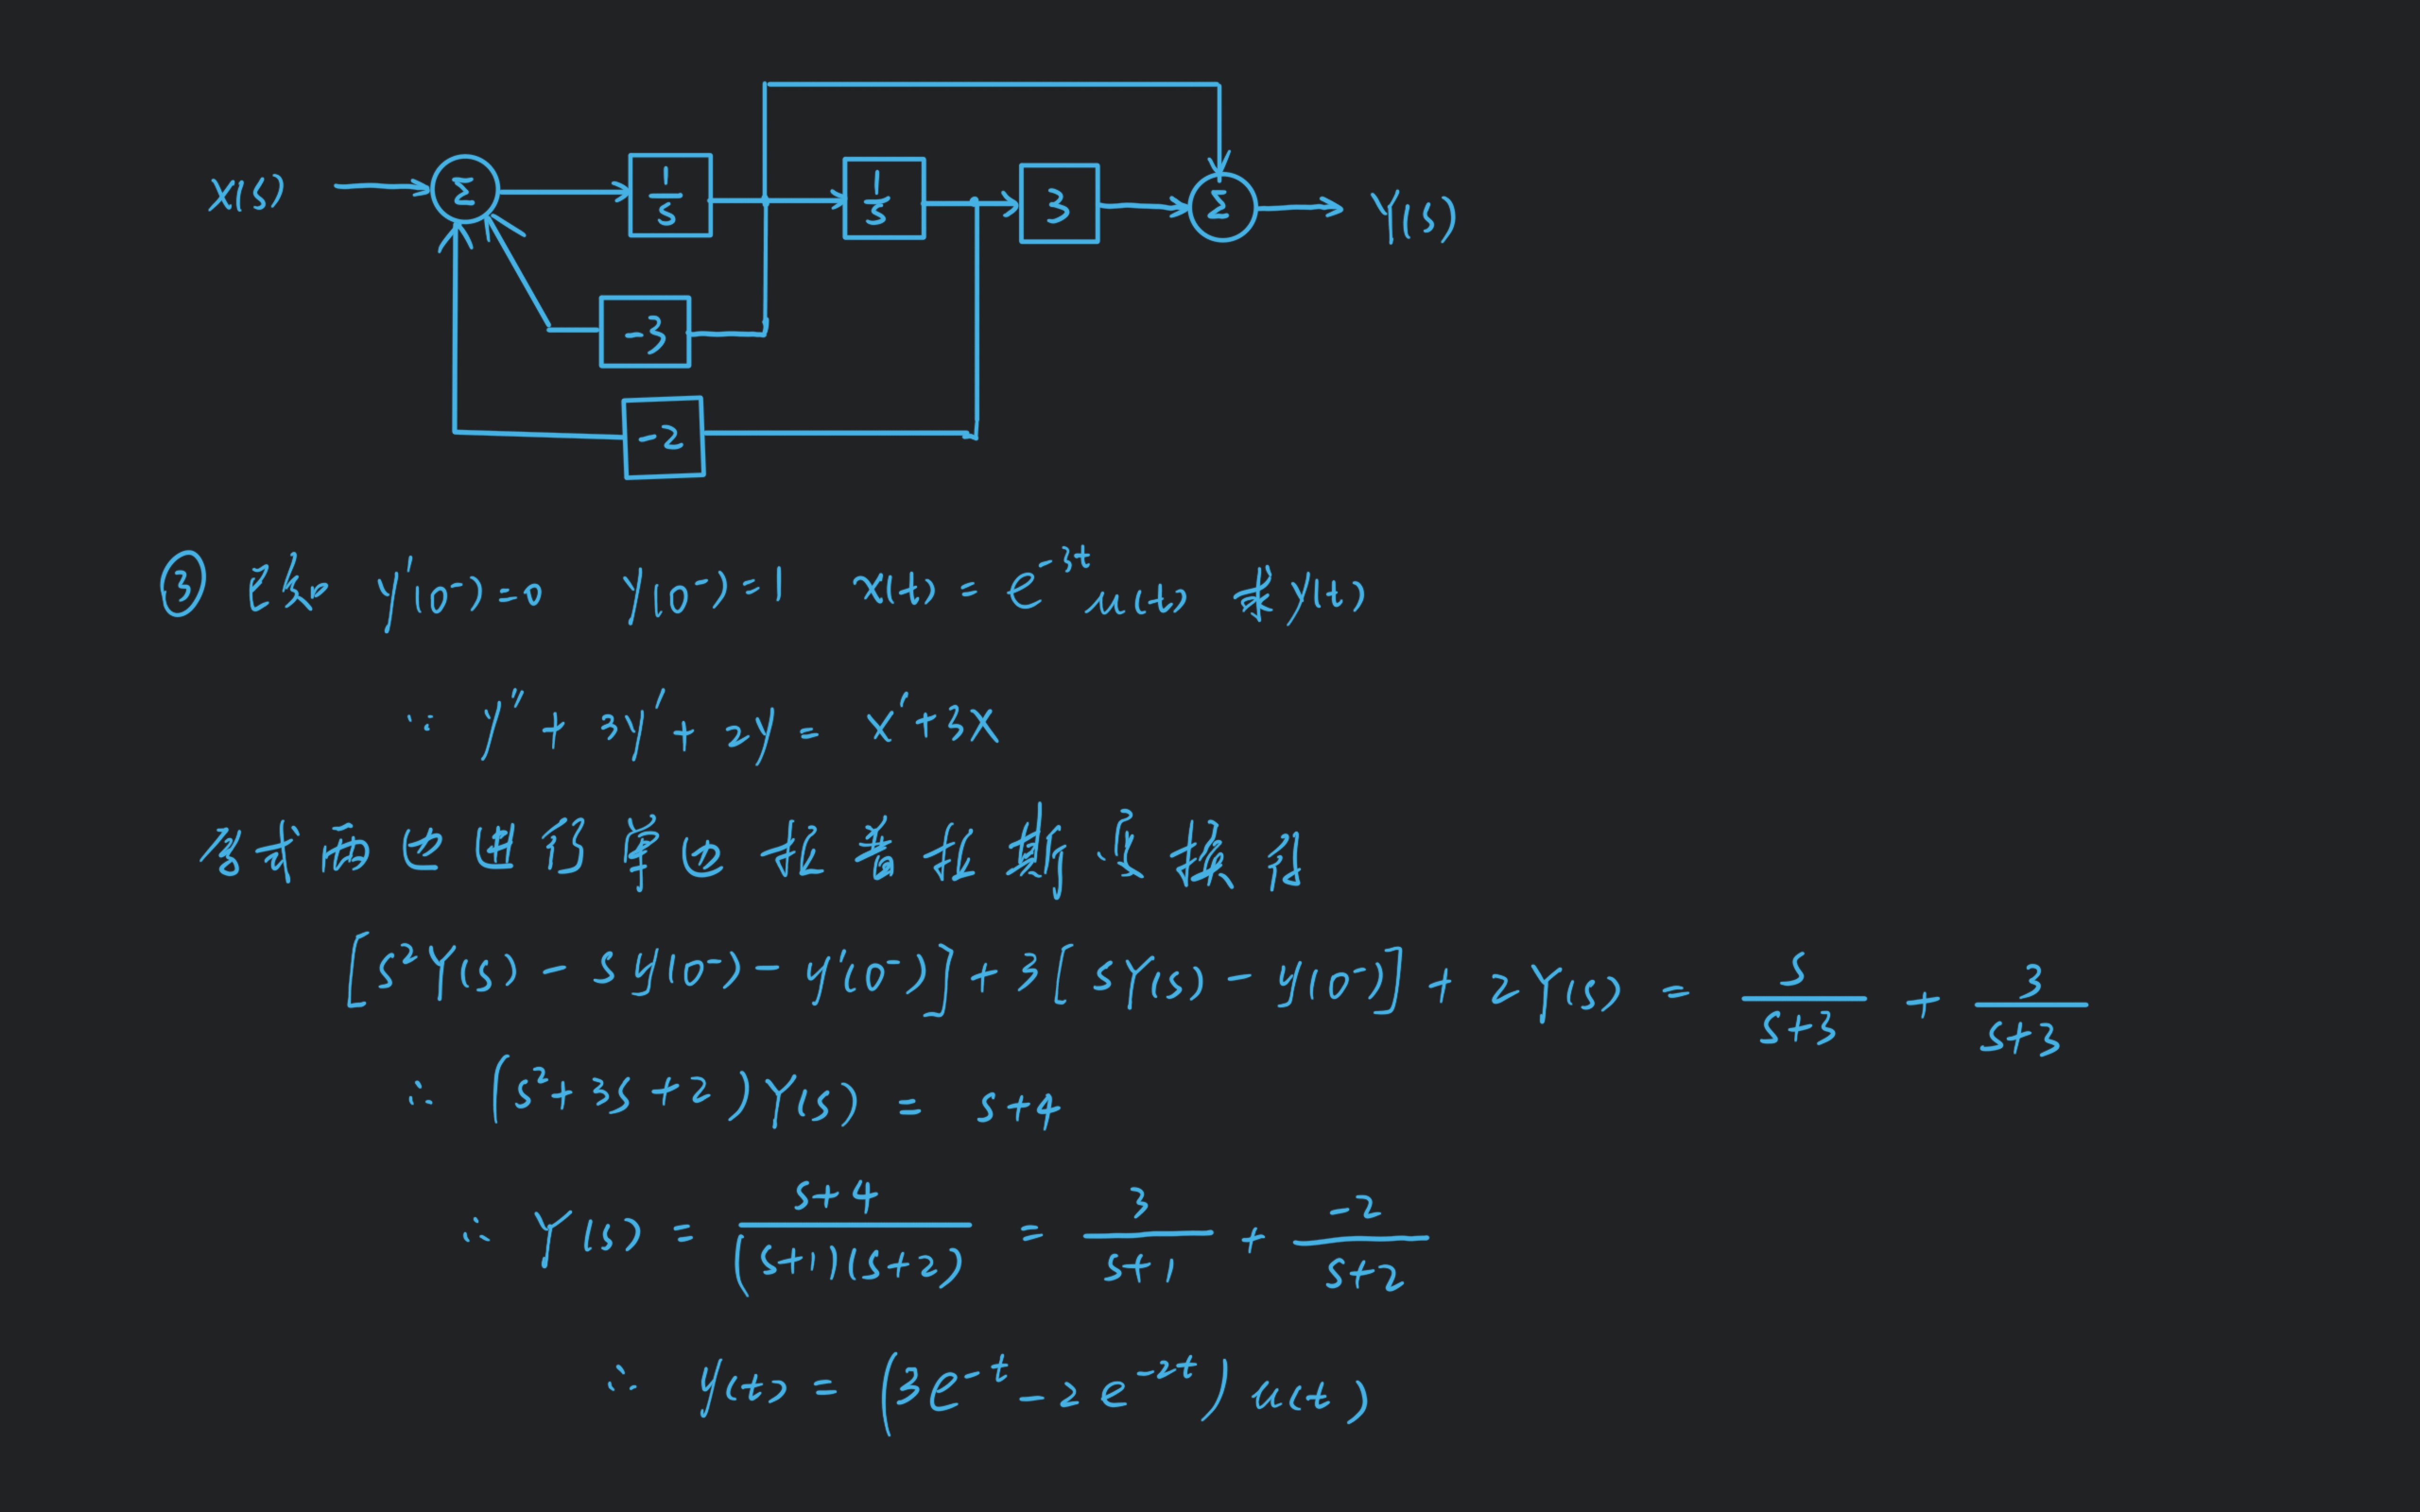 X(s) Σ 1/s 1/s 3 Σ Y(s)
-3
-2
③ 已知 y'(0⁻)=0 y(0⁻)=1 x(t) = e^{-3t} u(t) 求y(t)
∵ y'' + 3y' + 2y = x' + 3x
各式两边进行单边拉普拉斯变换得
[s²Y(s) - sy(0⁻) - y'(0⁻)] + 3[sY(s) - y(0⁻)] + 2Y(s) = s/(s+3) + 3/(s+3)
∴ (s²+3s+2)Y(s) = s+4
∴ Y(s) = (s+4)/((s+1)(s+2)) = 3/(s+1) + -2/(s+2)
∴ y(t) = (3e^{-t} - 2e^{-2t})u(t)